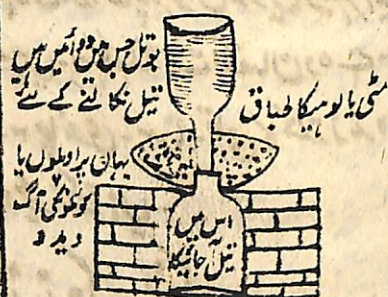 بوتل جس میں دوائیں ہیں
تیل نکالنے کے لئے
مٹی یا لوہیکا طباق
یہاں پر اوپلوں یا
کوئلونکی آگ
دیدو
اس میں
تیل آ جائیگا